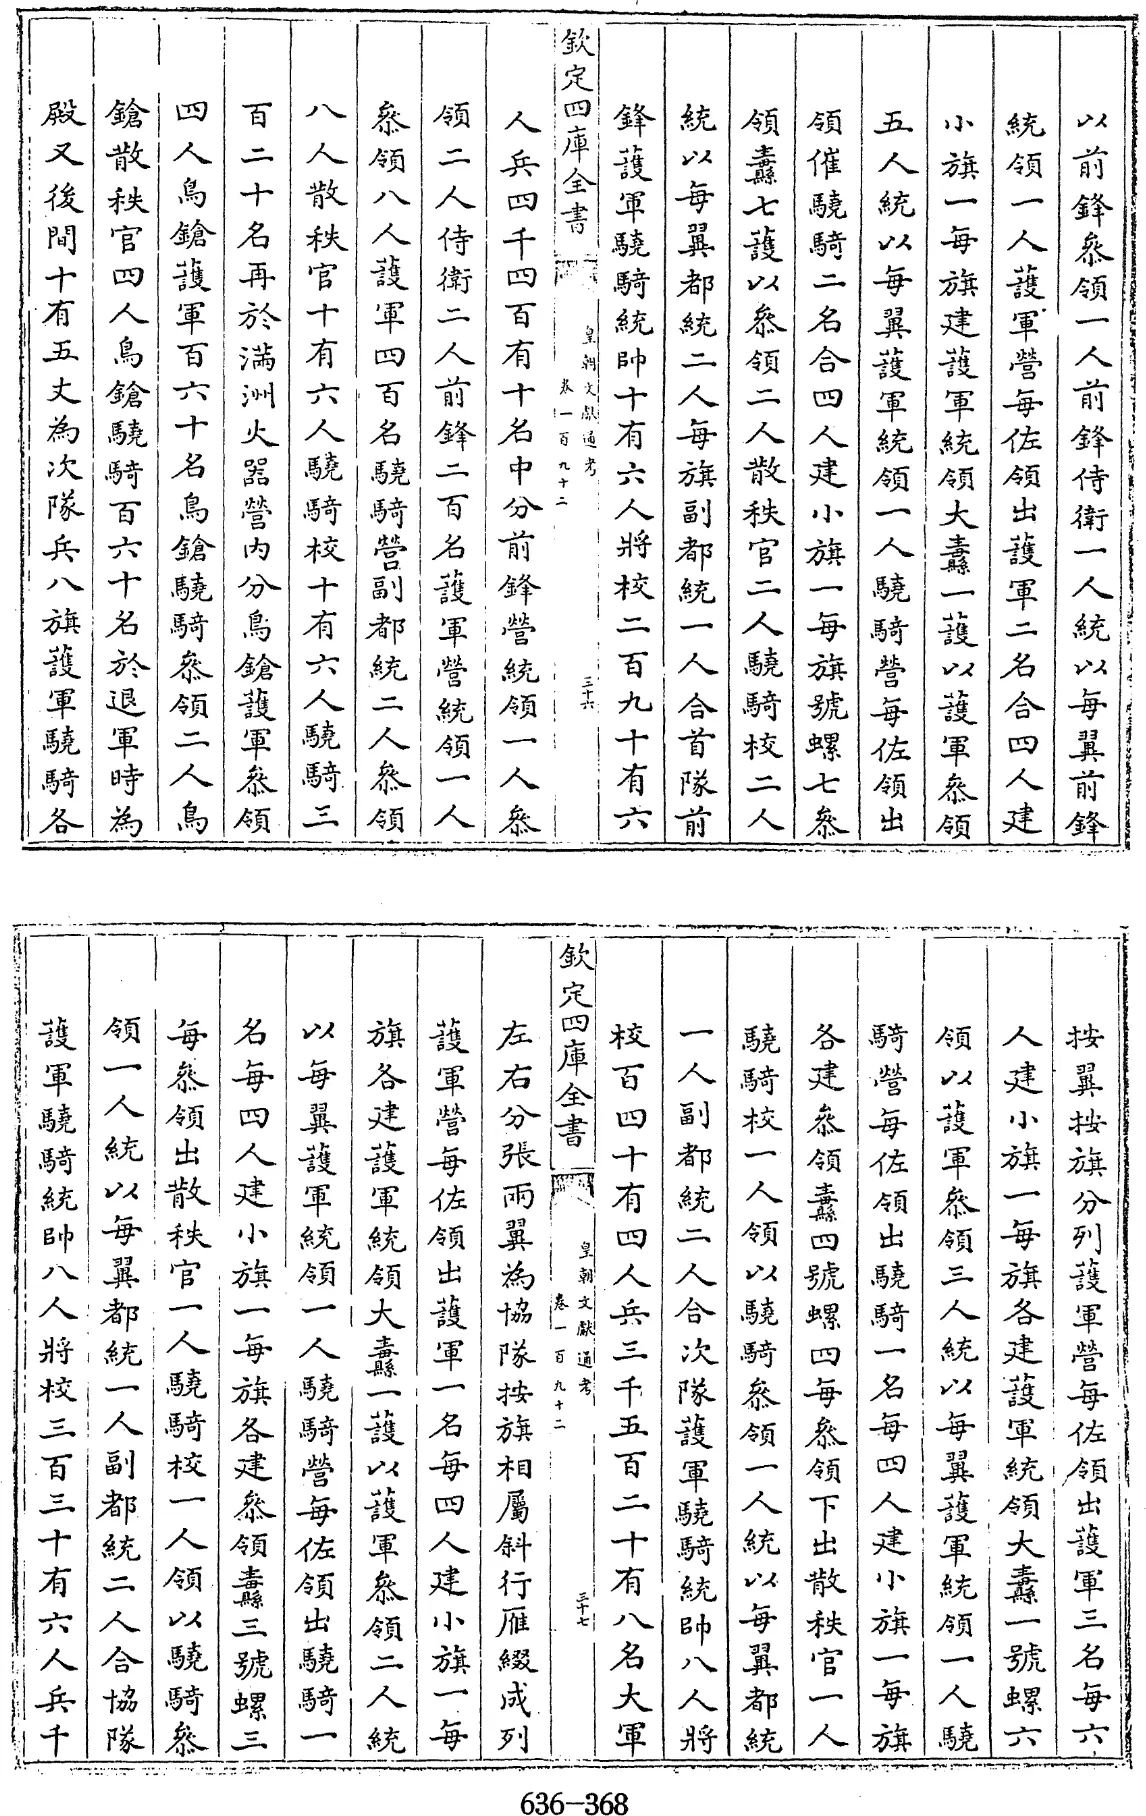 以前鋒叅領一人前鋒侍衛一人統以每翼前鋒
統領一人護軍營每佐領出護軍二名合四人建
小旗一每旗建護軍統領大纛一護以護軍叅領
五人統以每翼護軍統領一人驍騎營每佐領出
領催驍騎二名合四人建小旗一每旗號螺七叅
領纛七護以叅領二人散秩官二人驍騎校二人
統以每翼都統二人每旗副都統一人合首隊前
鋒護軍驍騎統帥十有六人將校二百九十有六
欽定四庫全書
皇朝文獻通考
卷一百九十二
三十六
人兵四千四百有十名中分前鋒營統領一人叅
領二人侍衛二人前鋒二百名護軍營統領一人
叅領八人護軍四百名驍騎營副都統二人叅領
八人散秩官十有六人驍騎校十有六人驍騎三
百二十名再於滿洲火器營内分鳥鎗護軍叅領
四人鳥鎗護軍百六十名鳥鎗驍騎叅領二人鳥
鎗散秩官四人鳥鎗驍騎百六十名於退軍時為
殿又後間十有五丈為次隊兵八旗護軍驍騎各
按翼按旗分列護軍營每佐領出護軍三名每六
人建小旗一每旗各建護軍統領大纛一號螺六
領以護軍叅領三人統以每翼護軍統領一人驍
騎營每佐領出驍騎一名每四人建小旗一每旗
各建叅領纛四號螺四每叅領下出散秩官一人
驍騎校一人領以驍騎叅領一人統以每翼都統
一人副都統二人合次隊護軍驍騎統帥八人將
校百四十有四人兵三千五百二十有八名大軍
欽定四庫全書
皇朝文獻通考
卷一百九十二
三十七
左右分張兩翼為協隊按旗相屬斜行雁綴成列
護軍營每佐領出護軍一名每四人建小旗一每
旗各建護軍統領大纛一護以護軍叅領二人統
以每翼護軍統領一人驍騎營每佐領出驍騎一
名每四人建小旗一每旗各建叅領纛三號螺三
每叅領出散秩官一人驍騎校一人領以驍騎叅
領一人統以每翼都統一人副都統二人合協隊
護軍驍騎統帥八人將校三百三十有六人兵千
636-368